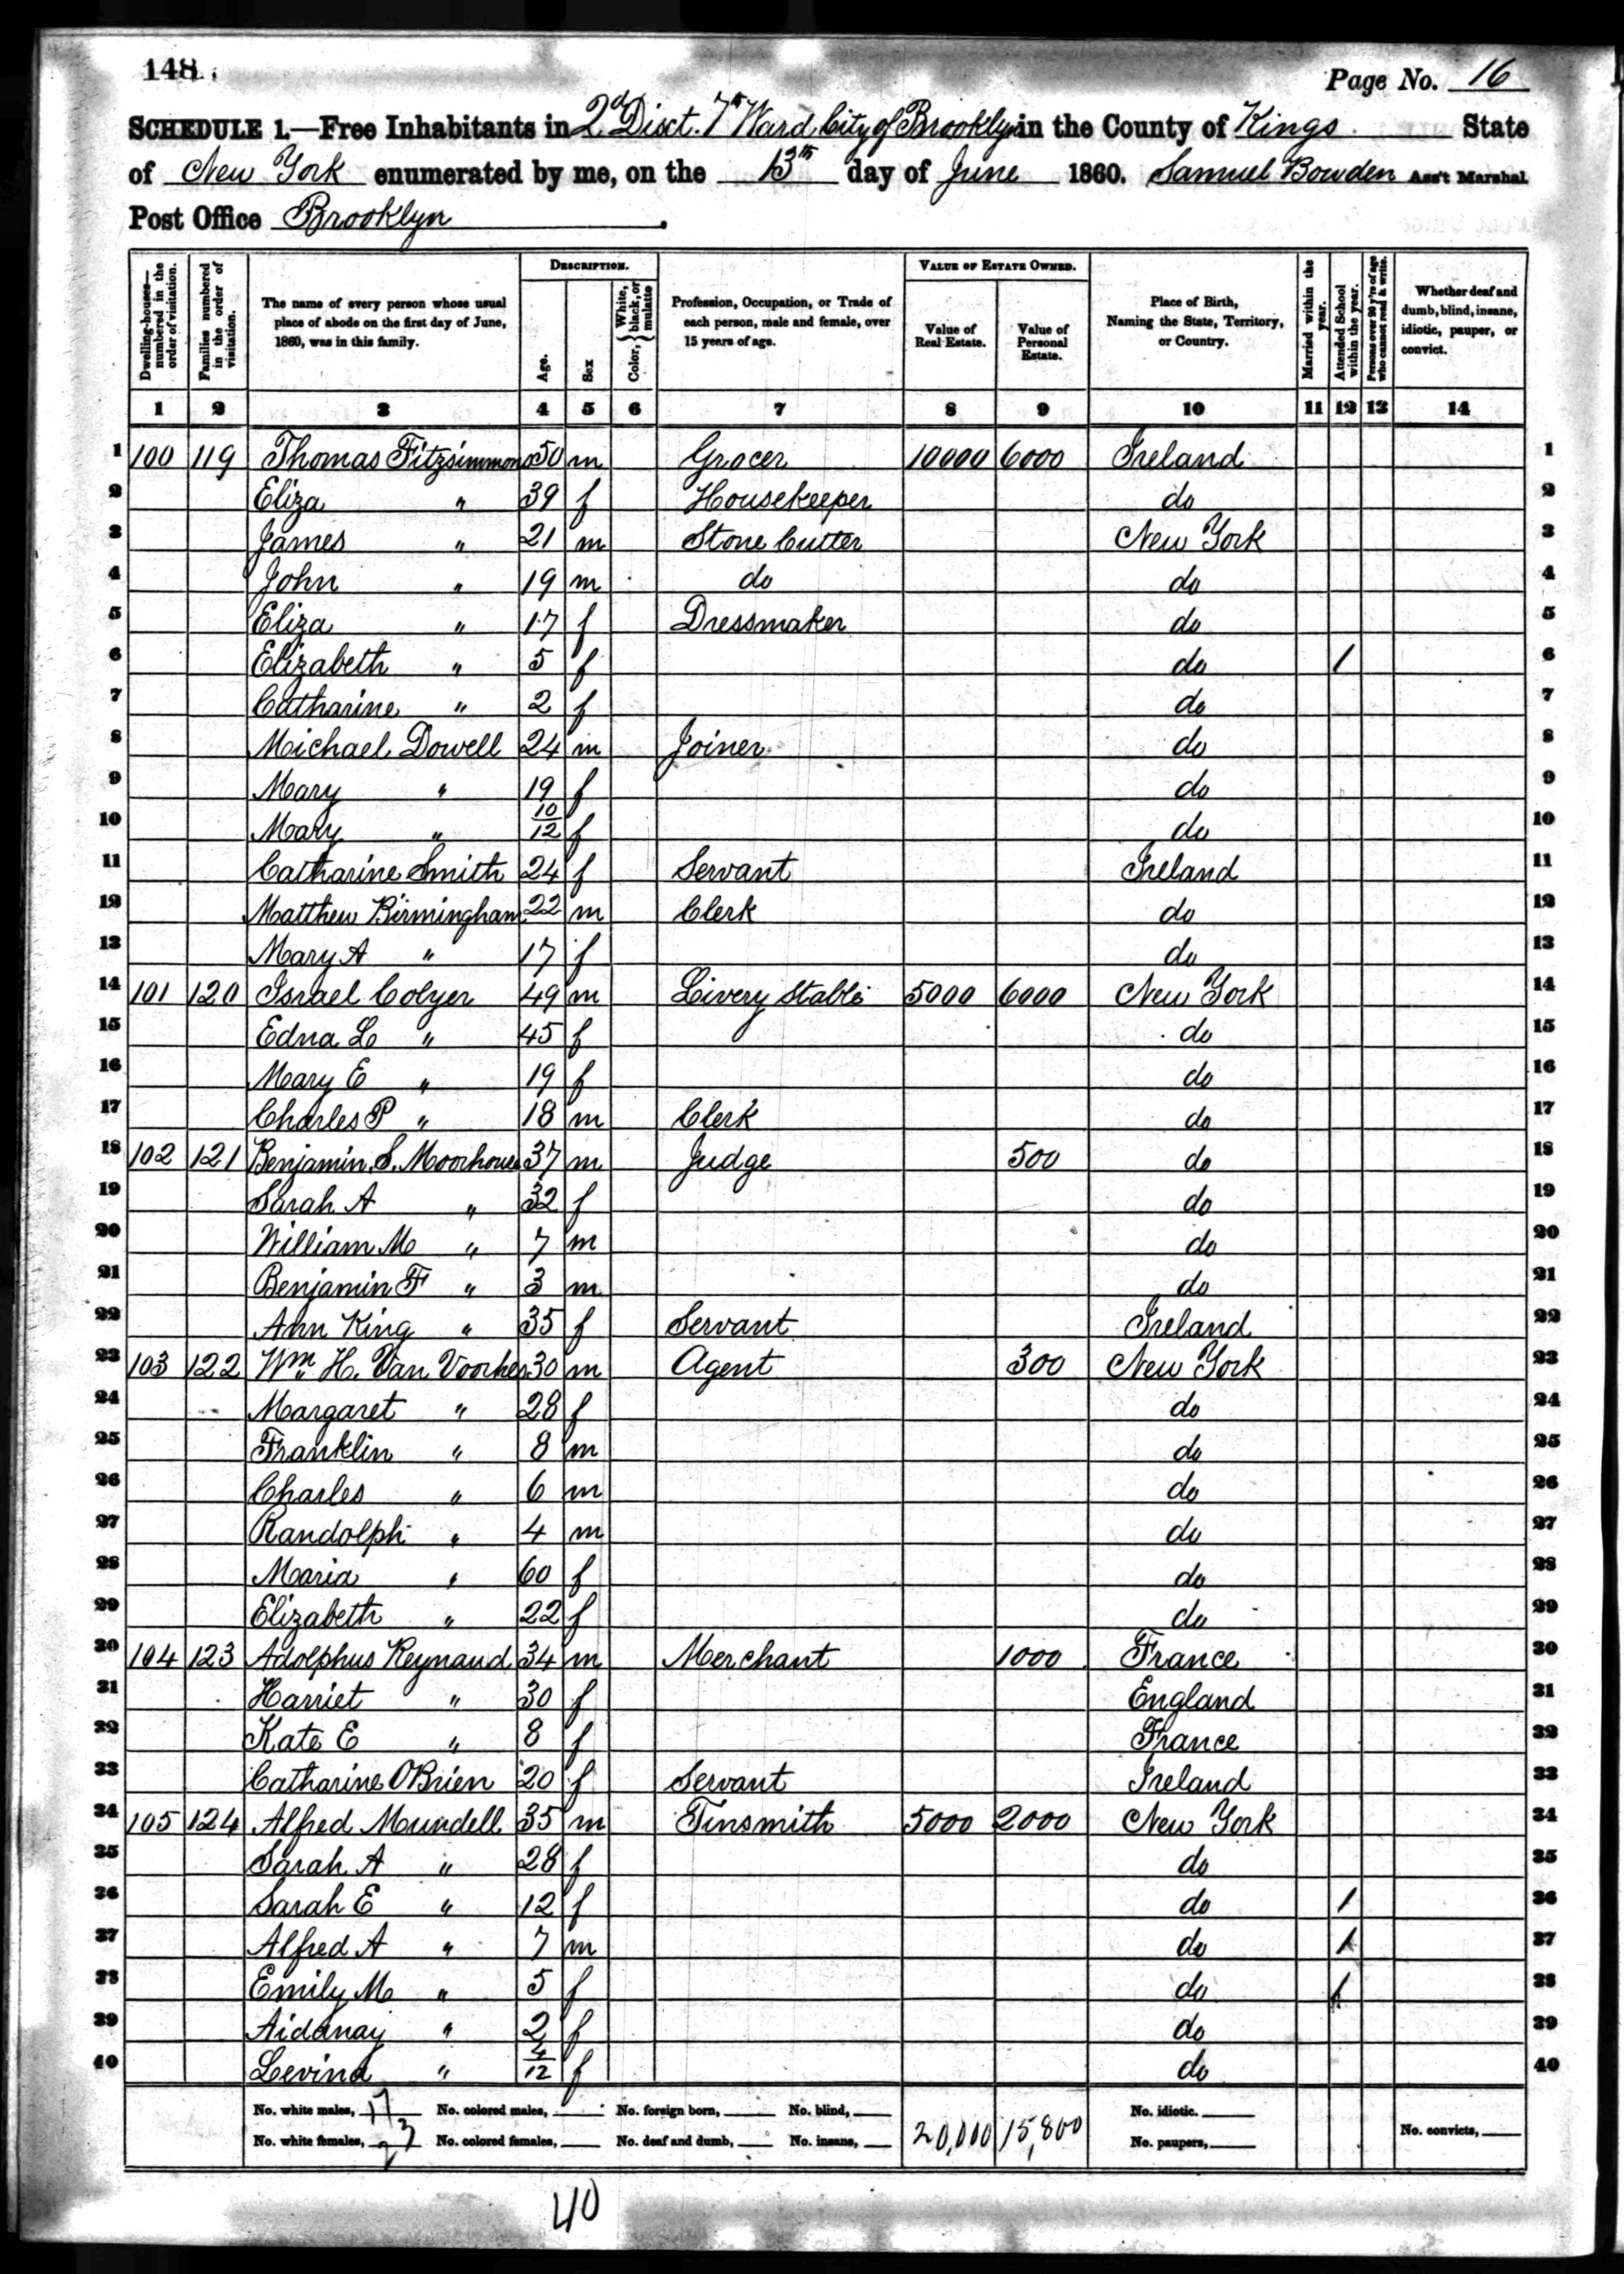 148.
Page No. 16
SCHEDULE 1.—Free Inhabitants in 2d Disct. 7th Ward City of Brooklyn in the County of Kings State
of New York enumerated by me, on the 13th day of June 1860. Samuel Bowden Ass't Marshal
Post Office Brooklyn.
Dwelling-houses—numbered in the order of visitation. Families numbered in the order of visitation. The name of every person whose usual place of abode on the first day of June, 1860, was in this family. DESCRIPTION. Age. Sex Color, { White, black, or mulatto Profession, Occupation, or Trade of each person, male and female, over 15 years of age. VALUE OF ESTATE OWNED. Value of Real Estate. Value of Personal Estate. Place of Birth, Naming the State, Territory, or Country. Married within the year. Attended School within the year. Persons over 20 y'rs of age who cannot read & write. Whether deaf and dumb, blind, insane, idiotic, pauper, or convict.
1 2 3 4 5 6 7 8 9 10 11 12 13 14
1 100 119 Thomas Fitzsimmons 50 m Grocer 10000 6000 Ireland 1
2 Eliza " 39 f Housekeeper do 2
3 James " 21 m Stone Cutter New York 3
4 John " 19 m do do 4
5 Eliza " 17 f Dressmaker do 5
6 Elizabeth " 5 f do / 6
7 Catharine " 2 f do 7
8 Michael Dowell 24 m Joiner do 8
9 Mary " 19 f do 9
10 Mary " 10/12 f do 10
11 Catharine Smith 24 f Servant Ireland 11
12 Matthew Birmingham 22 m Clerk do 12
13 Mary A " 17 f do 13
14 101 120 Israel Colyer 49 m Livery Stable 5000 6000 New York 14
15 Edna L " 45 f do 15
16 Mary E " 19 f do 16
17 Charles P " 18 m Clerk do 17
18 102 121 Benjamin S. Moorhouse 37 m Judge 500 do 18
19 Sarah A " 32 f do 19
20 William M " 7 m do 20
21 Benjamin F " 3 m do 21
22 Ann King " 35 f Servant Ireland 22
23 103 122 Wm H. Van Voorhes 30 m Agent 300 New York 23
24 Margaret " 28 f do 24
25 Franklin " 8 m do 25
26 Charles " 6 m do 26
27 Randolph " 4 m do 27
28 Maria " 60 f do 28
29 Elizabeth " 22 f do 29
30 104 123 Adolphus Reynaud 34 m Merchant 1000 France 30
31 Harriet " 30 f England 31
32 Kate E " 8 f France 32
33 Catharine OBrien 20 f Servant Ireland 33
34 105 124 Alfred Mundell 35 m Tinsmith 5000 2000 New York 34
35 Sarah A " 28 f do 35
36 Sarah E " 12 f do / 36
37 Alfred A " 7 m do / 37
38 Emily M " 5 f do / 38
39 " 2 f do 39
40 Levina " 4/12 f do 40
No. white males, 17 No. colored males, No. foreign born, No. blind, 20,000 15,800 No. idiotic. No. convicts,
No. white females, 23 No. colored females, No. deaf and dumb, No. insane, No. paupers,
40